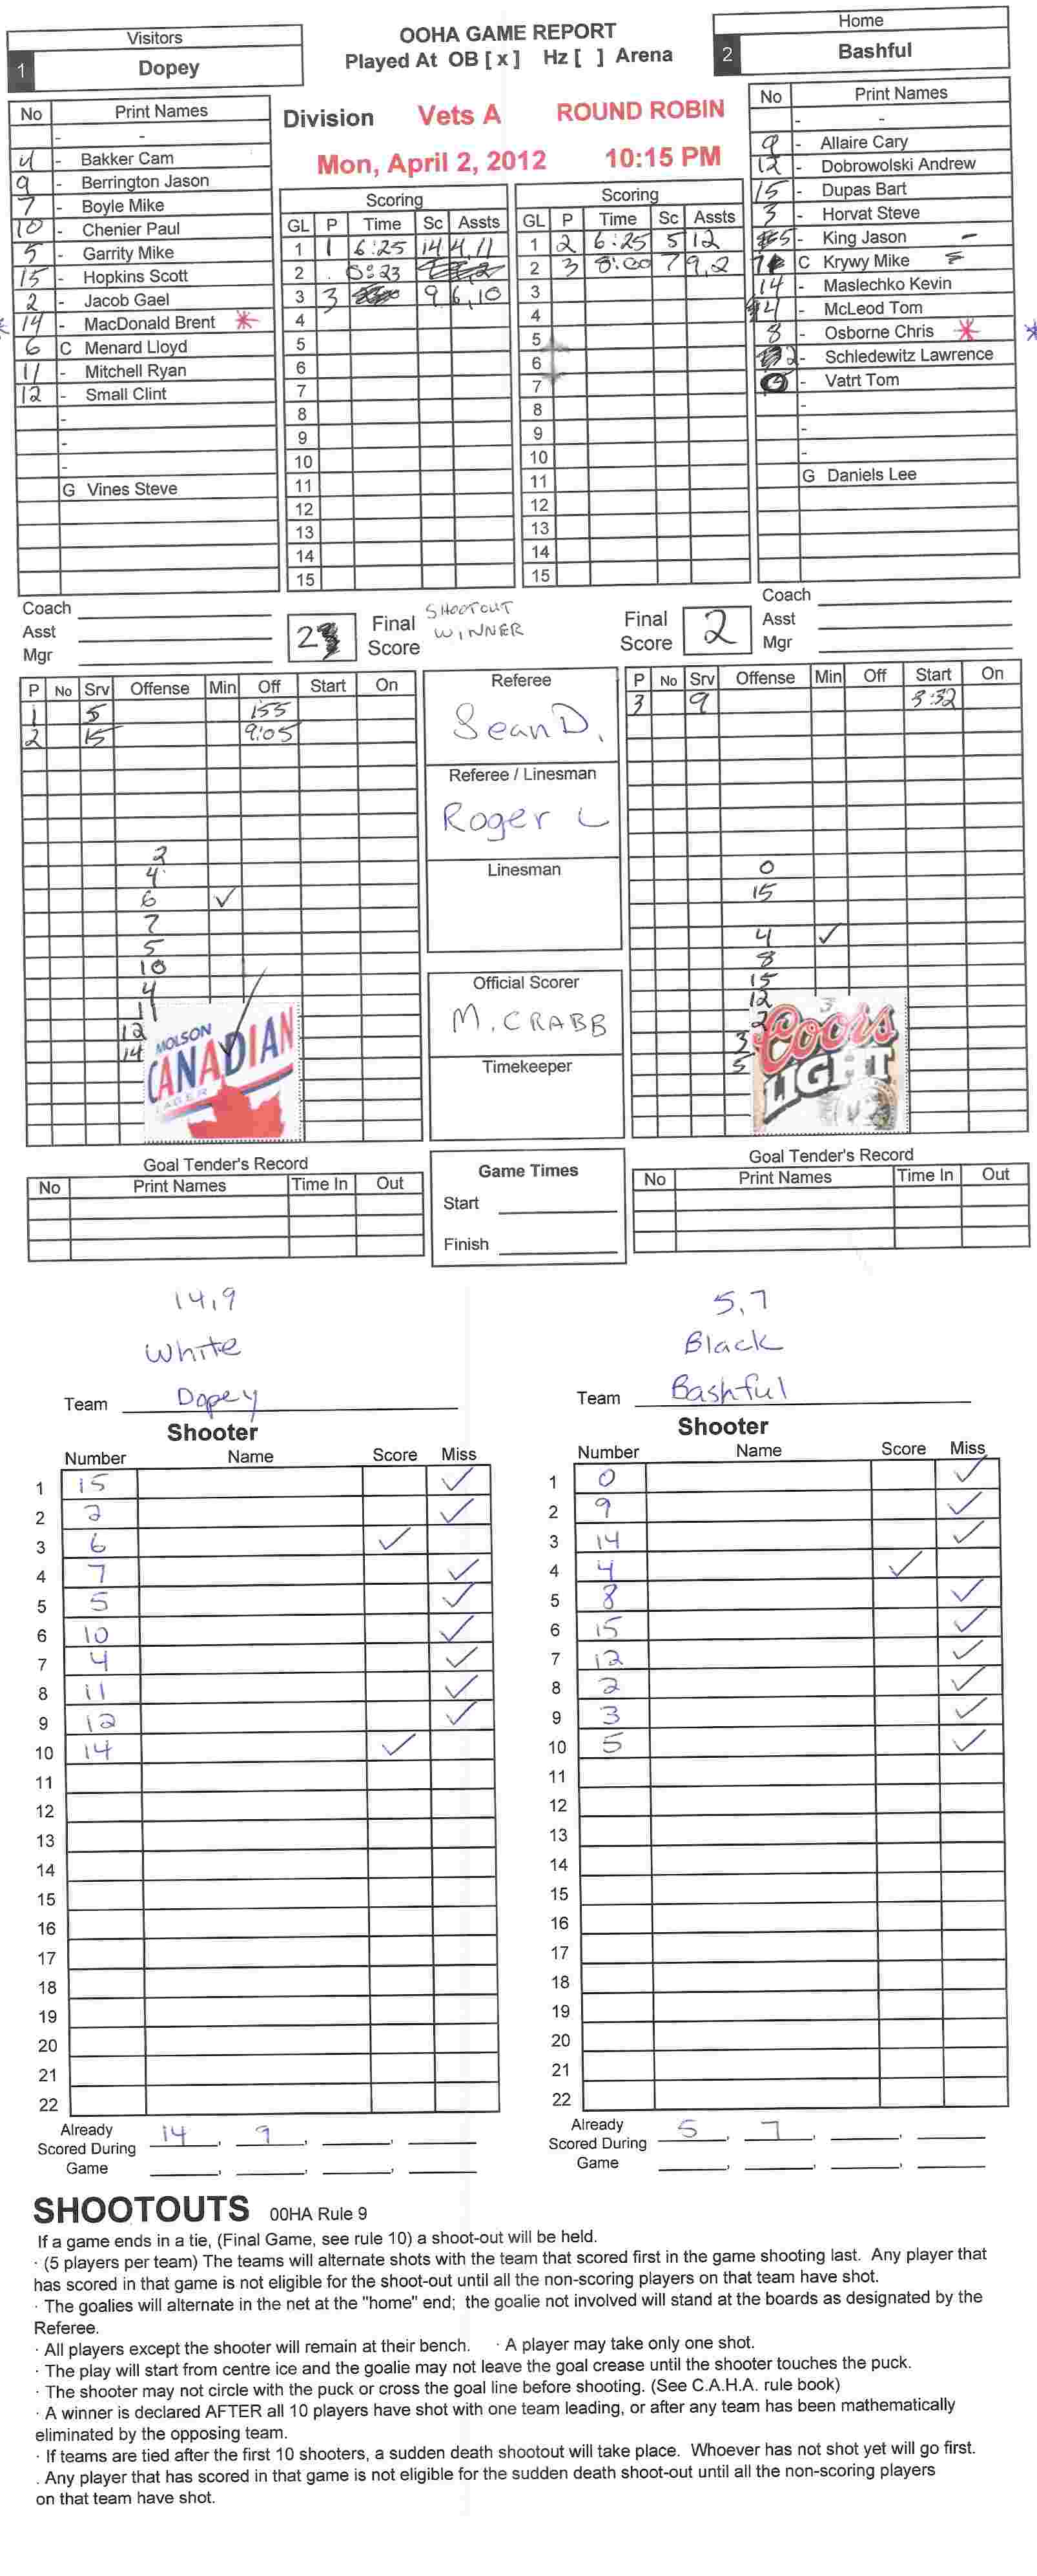 Visitors
1 Dopey
OOHA GAME REPORT
Played At OB [ x ] Hz [ ] Arena
Home
2 Bashful
Division Vets A ROUND ROBIN
Mon, April 2, 2012 10:15 PM
No Print Names
- -
4 - Bakker Cam
9 - Berrington Jason
7 - Boyle Mike
10 - Chenier Paul
5 - Garrity Mike
15 - Hopkins Scott
2 - Jacob Gael
14 - MacDonald Brent *
6 C Menard Lloyd
11 - Mitchell Ryan
12 - Small Clint
-
-
-
G Vines Steve
Scoring
GL P Time Sc Assts
1 1 6:25 14 4,11
2 . 0:23
3 3 9 6,10
4
5
6
7
8
9
10
11
12
13
14
15
Scoring
GL P Time Sc Assts
1 2 6:25 5 12
2 3 8:00 7 9,2
3
4
5
6
7
8
9
10
11
12
13
14
15
No Print Names
- -
9 - Allaire Cary
12 - Dobrowolski Andrew
15 - Dupas Bart
3 - Horvat Steve
5 - King Jason
7 C Krywy Mike
14 - Maslechko Kevin
4 - McLeod Tom
8 - Osborne Chris *
2 - Schledewitz Lawrence
- Vatrt Tom
-
-
-
G Daniels Lee
Coach
Asst
Mgr
2 Final Score
SHOOTOUT WINNER
Final Score 2
Coach
Asst
Mgr
P No Srv Offense Min Off Start On
1 5 155
2 15 9:05
2
4
6 ✓
7
5
10
4
11
12
14
MOLSON
CANADIAN
LAGER
Referee
Sean D.
Referee / Linesman
Roger L
Linesman
Official Scorer
M. CRABB
Timekeeper
P No Srv Offense Min Off Start On
3 9 3:32
0
15
4 ✓
8
15
12
2
3
5
Coors
LIGHT
Goal Tender's Record
No Print Names Time In Out
Game Times
Start
Finish
Goal Tender's Record
No Print Names Time In Out
14,9
White
Team Dopey
Shooter
Number Name Score Miss
1 15 ✓
2 2 ✓
3 6 ✓
4 7 ✓
5 5 ✓
6 10 ✓
7 4 ✓
8 11 ✓
9 12 ✓
10 14 ✓
11
12
13
14
15
16
17
18
19
20
21
22
Already Scored During Game 14, 9, ,
5,7
Black
Team Bashful
Shooter
Number Name Score Miss
1 0 ✓
2 9 ✓
3 14 ✓
4 4 ✓
5 8 ✓
6 15 ✓
7 12 ✓
8 2 ✓
9 3 ✓
10 5 ✓
11
12
13
14
15
16
17
18
19
20
21
22
Already Scored During Game 5, 7, ,
SHOOTOUTS 00HA Rule 9
If a game ends in a tie, (Final Game, see rule 10) a shoot-out will be held.
· (5 players per team) The teams will alternate shots with the team that scored first in the game shooting last. Any player that
has scored in that game is not eligible for the shoot-out until all the non-scoring players on that team have shot.
· The goalies will alternate in the net at the "home" end; the goalie not involved will stand at the boards as designated by the
Referee.
· All players except the shooter will remain at their bench. · A player may take only one shot.
· The play will start from centre ice and the goalie may not leave the goal crease until the shooter touches the puck.
· The shooter may not circle with the puck or cross the goal line before shooting. (See C.A.H.A. rule book)
· A winner is declared AFTER all 10 players have shot with one team leading, or after any team has been mathematically
eliminated by the opposing team.
· If teams are tied after the first 10 shooters, a sudden death shootout will take place. Whoever has not shot yet will go first.
. Any player that has scored in that game is not eligible for the sudden death shoot-out until all the non-scoring players
on that team have shot.